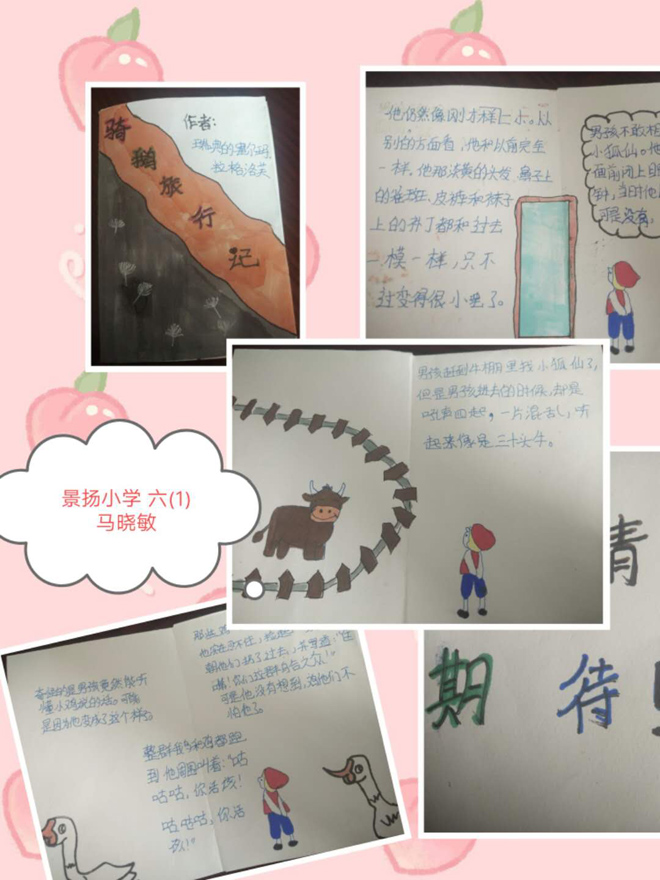 骑鹅旅行记
作者:
瑞典的塞尔玛
拉格洛芙
他仍然像刚才样子小。从
别的方面看,他和以前完全
一样。他那淡黄的头发、鼻子上
的雀斑、皮裤和袜子
上的补丁都和过去
模一样,只不
过变得很小罢了。
男孩不敢相
小狐仙。他
面前闭上
钟,当时他
可是没有,
男孩赶到牛棚里找小狐仙了,
但是男孩进去的时候,却是
吼声四起,一片混乱,听
起来像是三十头牛。
景扬小学 六(1)
马晓敏
奇怪的是男孩竟然能听
懂小鸡说的话。可能
是因为他变成了这个样子
整群鹅和鸡都跑
到他周围叫着:“咕
咕咕,你活该!
咕咕咕,你活
该!”
可是他没有想到,他们不
怕他了。
期待